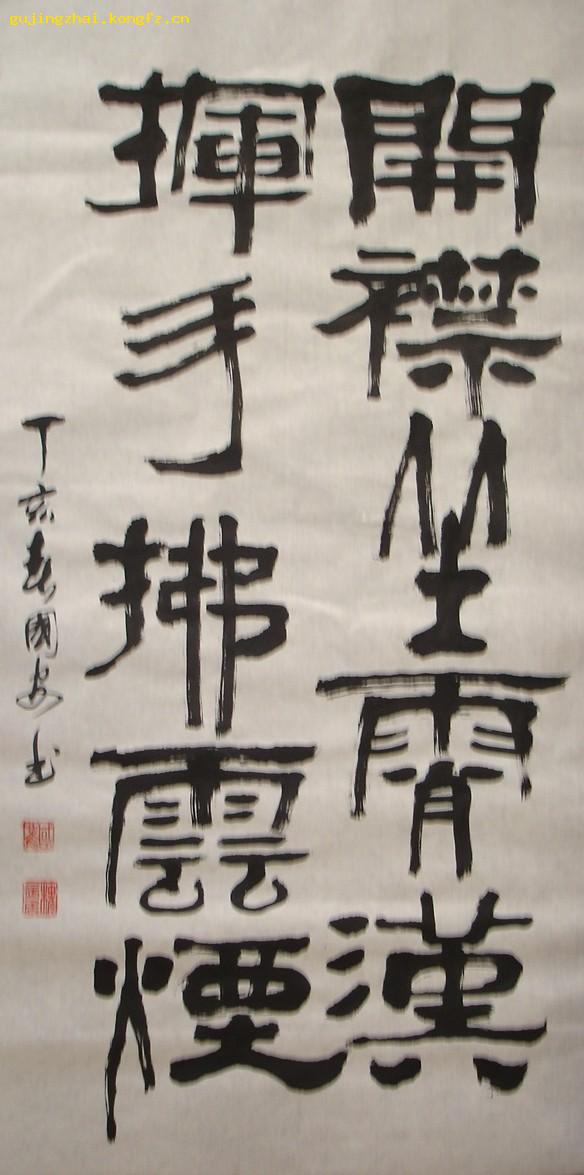 gujingzhai.kongfz.cn
開襟坐霄漢
揮手拂雲煙
丁亥春國安书